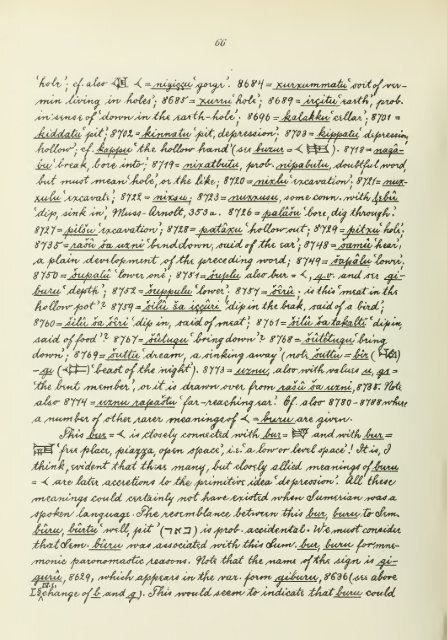 66
'hole'; cf. also 𒌋 = nigiççu 'gorge'. 8684 = xurxummatu 'sort of ver-
min living in holes'; 8685 = xurru 'hole'; 8689 = irçitu 'earth', prob.
in sense of 'down in the earth-hole'; 8696 = kalakku 'cellar'; 8701 =
kiddatu 'pit'; 8702 = kinnatu 'pit, depression'; 8703 = kippatu 'depression,
hollow'; cf. kappu 'the hollow hand' (see buzur = ). 8718 = naqâ-
bu 'break, bore into'; 8719 = nixatbutu, prob. nipabutu, doubtful word,
but must mean 'hole', or the like; 8720 = nixlu 'excavation'; 8721 = nux-
xulu 'excavate'; 8722 = nixsu; 8723 = nuxxusu, some conn. with ṭebû
'dip, sink in', Muss-Arnolt, 353a. 8726 = palâšu 'bore, dig through'.
8727 = pilšu 'excavation'; 8728 = patâxu 'hollow out'; 8729 = pitxu 'hole';
8735 = rašû ša uzni 'bend down, said of the ear'; 8748 = šamû 'hear',
a plain development of the preceding word; 8749 = šapâlu 'lower';
8750 = šupalû 'lower one'; 8751 = šuplu also bur = 𒌋, q.v. and see gi-
buru 'depth'; 8752 = šuppulu 'lower'. 8757 = šîru: is this 'meat in the
hollow pot'? 8759 = šilû ša iççûri 'dip in the beak, said of a bird';
8760 = šilû ša šîri 'dip in, said of meat'; 8761 = šilû ša takalti 'dip in,
said of food'? 8767 = šûlugu 'bring down'? 8768 = šutêlugu 'bring
down'; 8769 = šuttu 'dream, a sinking away' (note šuttu = bir ( )
-gu ( 'beast of the night'). 8773 = uznu, also with values u, ge =
'the bent member', or it is drawn over from rašû ša uzni, 8735. Note
also 8774 = uznu rapaštu 'far-reaching ear'. Cf. also 8780-8788 where
a number of other rarer meanings of 𒌋 = buru are given.
This bur = 𒌋 is closely connected with bur = and with bur =
'free place, piazza, open space', i.e. 'a low or level space'! It is, I
think, evident that these many, but closely allied meanings of buru
= 𒌋 are later accretions to the primitive idea 'depression'. All these
meanings could certainly not have existed when Sumerian was a
spoken language. The resemblance between this bur, buru to Sem.
bûru, bûrtu 'well, pit' (באר) is prob. accidental. We must consider
that Sem. bûru was associated with this Sum. bur, buru for mne-
monic paronomastic reasons. Note that the name of the sign is gi-
gurû, 8629, which appears in the var. form giburu, 8636 (see above
change of b and g). This would seem to indicate that buru could